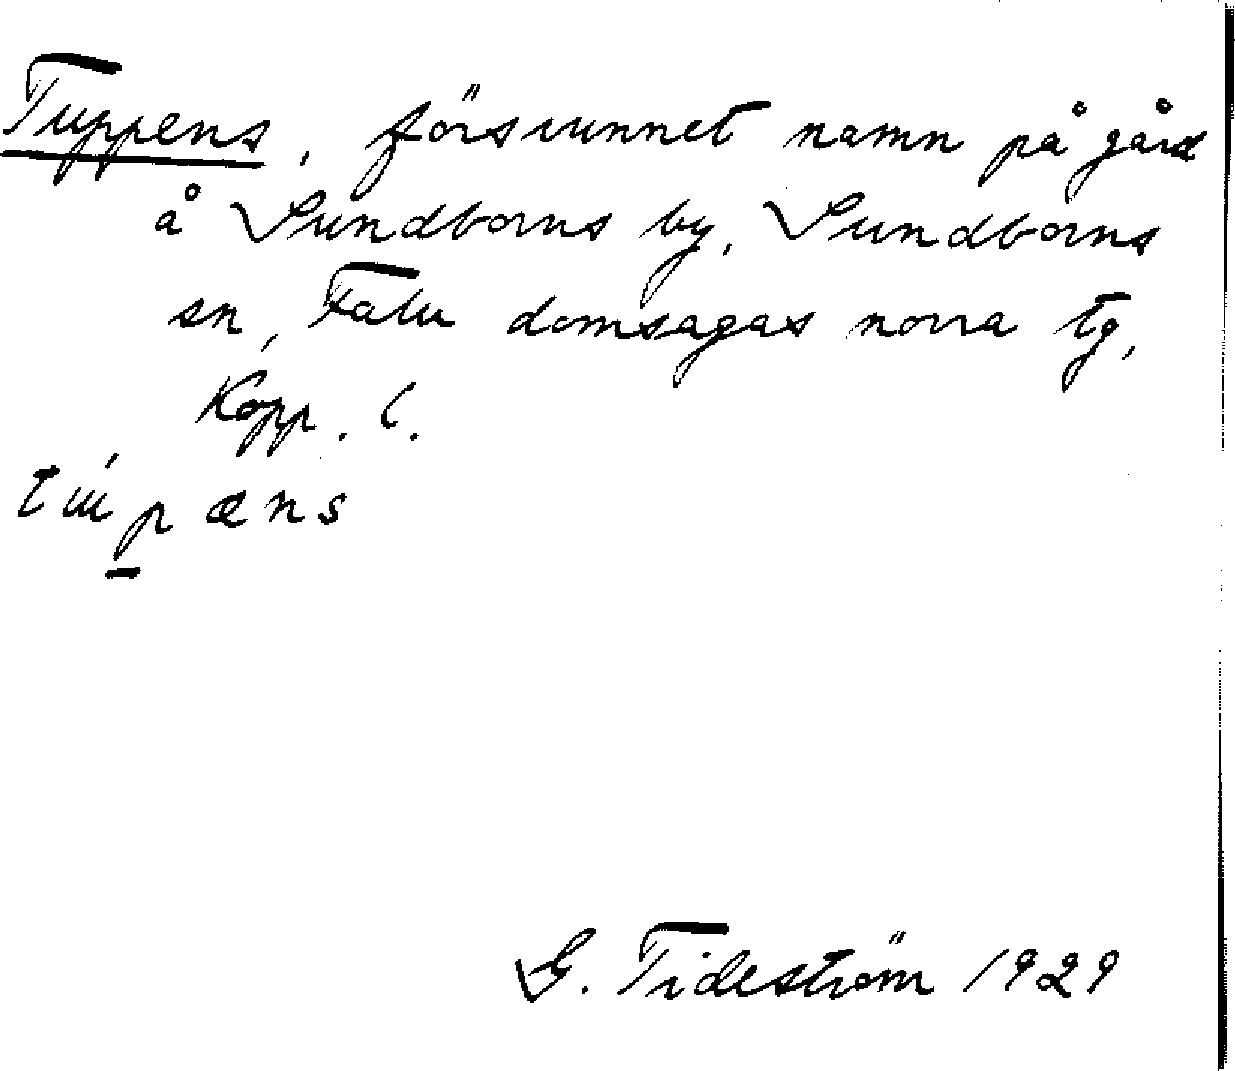 Tuppens, försvunnet namn på gård
å Sundborns by, Sundborns
sn, Falu domsagas norra tg,
Kopp. l.
túpæns
G. Tideström 1929